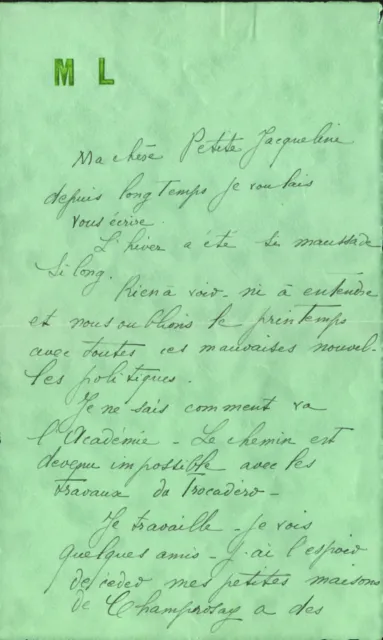 M L
Ma chère Petite Jacqueline
depuis longtemps je voulais
vous écrire.
L'hiver a été si maussade
si long.
Rien à voir - ni à entendre
et nous oublions le printemps
avec toutes ces mauvaises nouvel-
les politiques.
Je ne sais comment va
l'Académie - Le chemin est
devenu impossible avec les
travaux du Trocadéro -
Je travaille - je vois
quelques amis - J'ai l'espoir
de céder mes petites maisons
de Champrosay a des